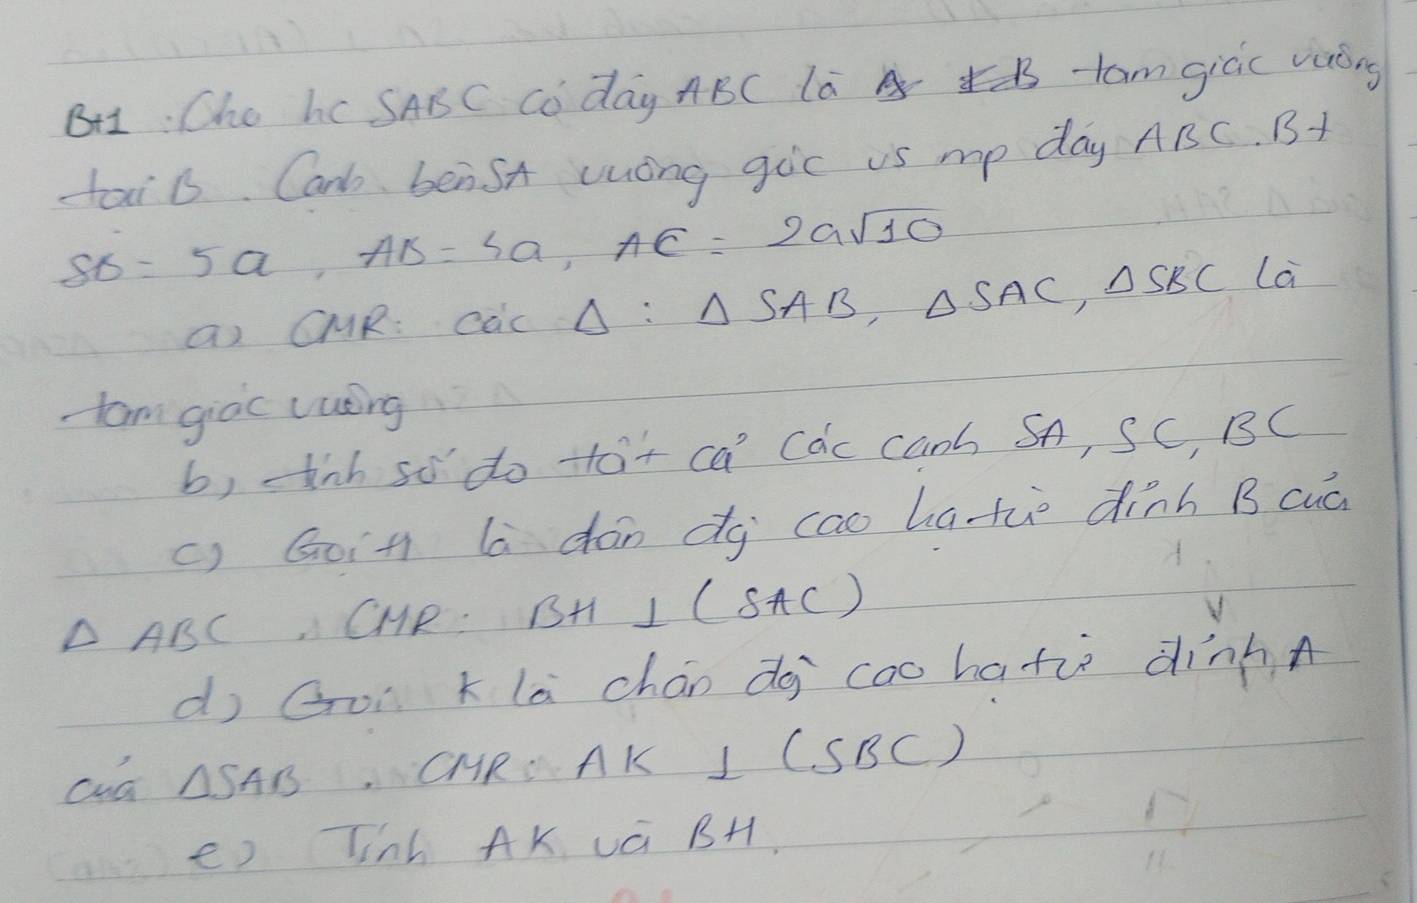 Bt1 : Cho hc SABC có đáy ABC là tam giác vuông
tại B. Cạnh bên SA vuông góc vs mp đáy ABC. Bt
SB = 5a, AB = 3a, AC = 2a√10
a) CMR: các Δ : Δ SAB, Δ SAC, Δ SBC là
tam giác vuông
b, tính số đo tất cả các cạnh SA, SC, BC
c) Gọi H là chân đg cao hạ từ đỉnh B của
Δ ABC. CMR: BH ⊥ (SAC)
d) Gọi K là chân đg cao hạ từ đỉnh A
của ΔSAB. CMR: AK ⊥ (SBC)
e) Tính AK và BH.